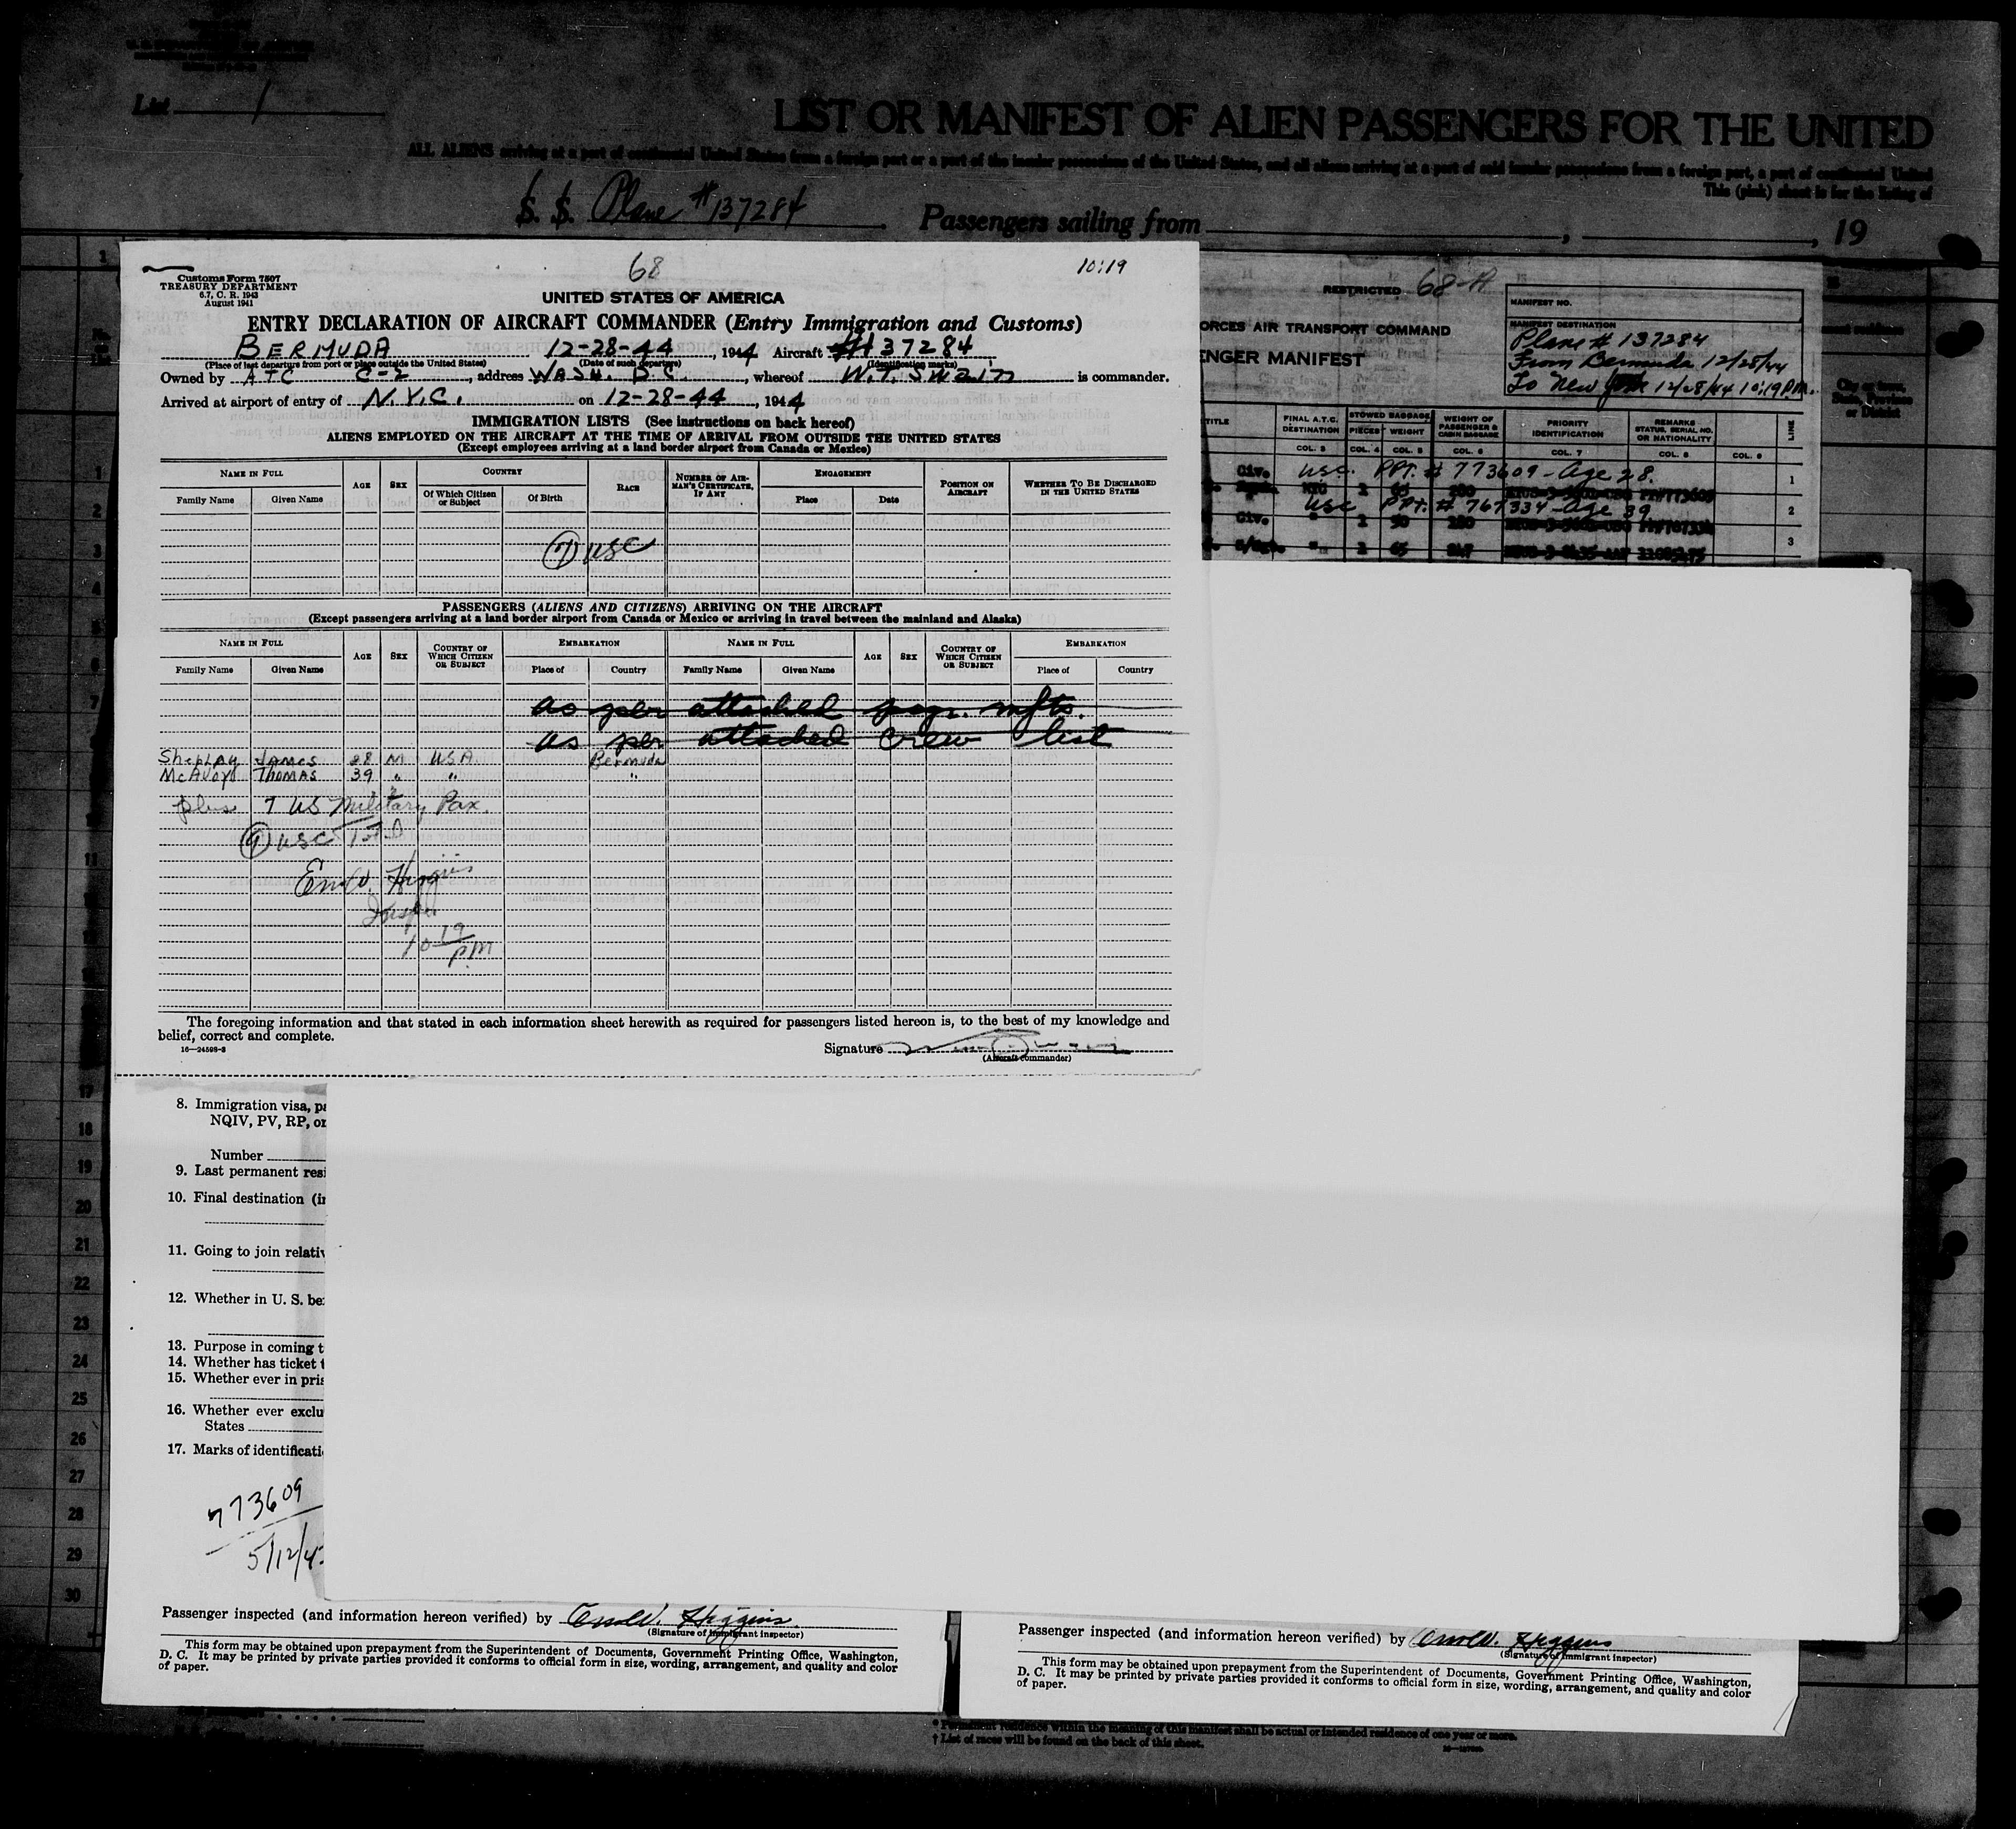 List 1
LIST OR MANIFEST OF ALIEN PASSENGERS FOR THE UNITED
ALL ALIENS arriving at a port of continental United States from a foreign port or a port of the insular possessions of the United States, and all aliens arriving at a port of said insular possessions from a foreign port, a port of continental United
This (pink) sheet is for the listing of
S. S. Plane #137284 Passengers sailing from , , 19
68 10:19
Customs Form 7507
TREASURY DEPARTMENT
6.7, C. R. 1943
August 1941
UNITED STATES OF AMERICA
ENTRY DECLARATION OF AIRCRAFT COMMANDER (Entry Immigration and Customs)
BERMUDA 12-28-44, 1944 Aircraft 37284
(Place of last departure from port or place outside the United States) (Date of such departure) (Identification marks)
Owned by ATC , address WASH. D.C. , whereof W.T. Swain is commander.
Arrived at airport of entry of N.Y.C. on 12-28-44, 1944
IMMIGRATION LISTS (See instructions on back hereof)
ALIENS EMPLOYED ON THE AIRCRAFT AT THE TIME OF ARRIVAL FROM OUTSIDE THE UNITED STATES
(Except employees arriving at a land border airport from Canada or Mexico)
NAME IN FULL AGE SEX COUNTRY RACE NUMBER OF AIRMAN'S CERTIFICATE, IF ANY ENGAGEMENT POSITION ON AIRCRAFT WHETHER TO BE DISCHARGED IN THE UNITED STATES
Family Name Given Name Of Which Citizen or Subject Of Birth Place Date
7 USC
PASSENGERS (ALIENS AND CITIZENS) ARRIVING ON THE AIRCRAFT
(Except passengers arriving at a land border airport from Canada or Mexico or arriving in travel between the mainland and Alaska)
NAME IN FULL AGE SEX COUNTRY OF WHICH CITIZEN OR SUBJECT EMBARKATION NAME IN FULL AGE SEX COUNTRY OF WHICH CITIZEN OR SUBJECT EMBARKATION
Family Name Given Name Place of Country Family Name Given Name Place of Country
as per attached psgr. mfts.
as per attached crew list
Shepley James 28 M USA Bermuda
McAvoy Thomas 39 " " "
plus 7 US Military Pax.
9 USC
Higgins
Insp
10 19 PM
The foregoing information and that stated in each information sheet herewith as required for passengers listed hereon is, to the best of my knowledge and
belief, correct and complete.
16—24598-3
Signature
(Aircraft commander)
RESTRICTED 68-A
ORCES AIR TRANSPORT COMMAND
ENGER MANIFEST
MANIFEST NO.
MANIFEST DESTINATION
Plane # 137284
From Bermuda 12/28/44
To New York 12/28/44 10:19 P.M.
TITLE FINAL A.T.C. DESTINATION STOWED BAGGAGE PIECES WEIGHT WEIGHT OF PASSENGER & CABIN BAGGAGE PRIORITY IDENTIFICATION REMARKS STATUS, SERIAL NO. OR NATIONALITY LINE
COL. 3 COL. 4 COL. 5 COL. 6 COL. 7 COL. 8 COL. 9
Civ. USC. PPT. # 773609 - Age 28. 1
USC PPT. # 767334 - Age 39 2
Civ.
3
8. Immigration visa, pa
NQIV, PV, RP, or
Number
9. Last permanent resi
10. Final destination (in
11. Going to join relativ
12. Whether in U. S. be
13. Purpose in coming t
14. Whether has ticket t
15. Whether ever in pris
16. Whether ever exclu
States
17. Marks of identificati
773609
5/12/4
Passenger inspected (and information hereon verified) by Higgins
(Signature of immigrant inspector)
This form may be obtained upon prepayment from the Superintendent of Documents, Government Printing Office, Washington,
D. C. It may be printed by private parties provided it conforms to official form in size, wording, arrangement, and quality and color
of paper.
Passenger inspected (and information hereon verified) by Higgins
(Signature of immigrant inspector)
This form may be obtained upon prepayment from the Superintendent of Documents, Government Printing Office, Washington,
D. C. It may be printed by private parties provided it conforms to official form in size, wording, arrangement, and quality and color
of paper.
* Permanent residence within the meaning of this manifest shall be actual or intended residence of one year or more.
† List of races will be found on the back of this sheet.